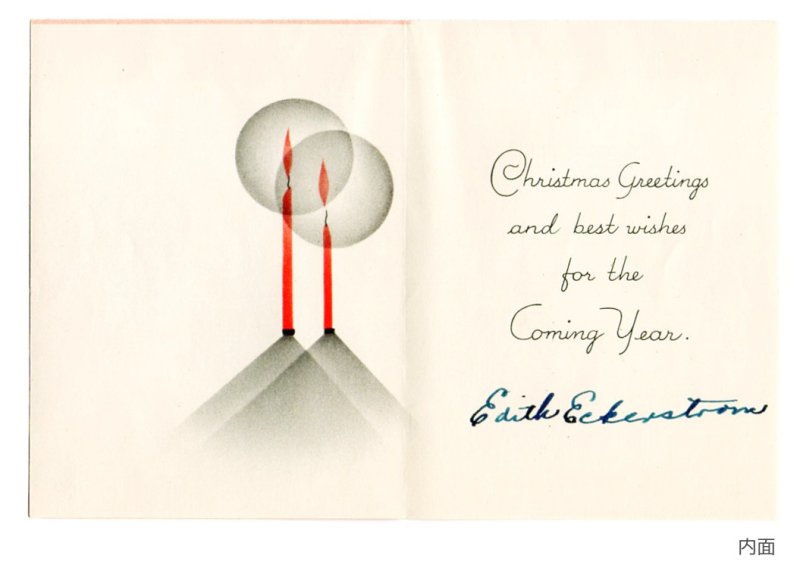 Christmas Greetings
and best wishes
for the
Coming Year.
Edith Eckerstrom
内面